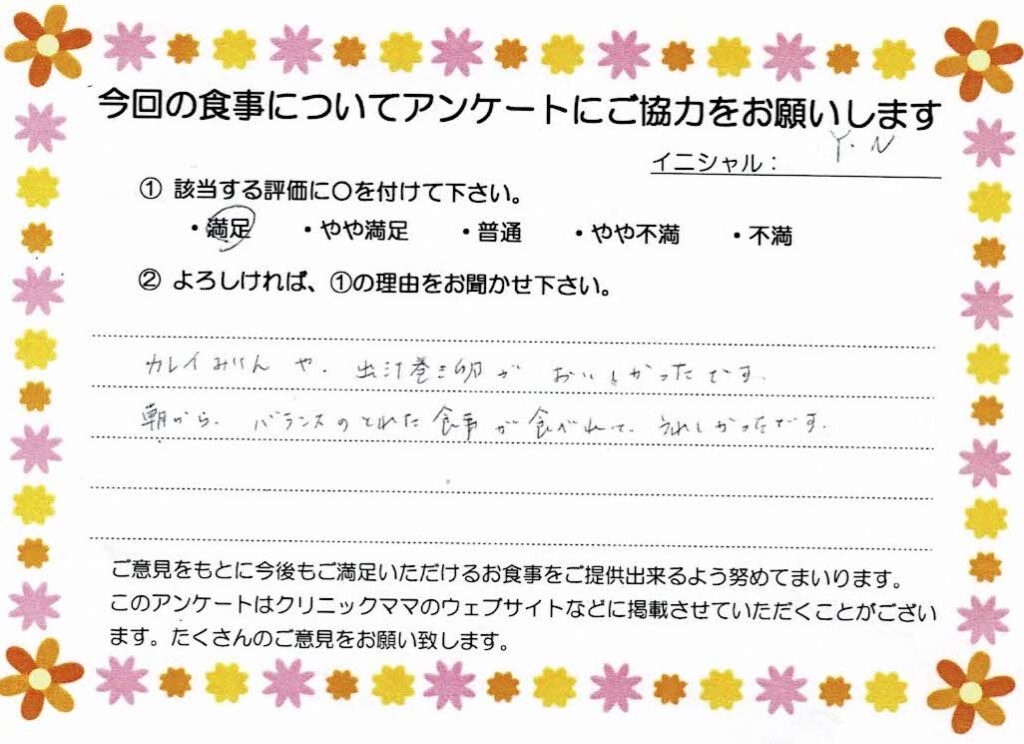 今回の食事についてアンケートにご協力をお願いします
イニシャル： Y.N
① 該当する評価に〇を付けて下さい。
・満足 ・やや満足 ・普通 ・やや不満 ・不満
② よろしければ、①の理由をお聞かせ下さい。
カレイみりんや、出汁巻き卵がおいしかったです。
朝から、バランスのとれた食事が食べれて、うれしかったです。
ご意見をもとに今後もご満足いただけるお食事をご提供出来るよう努めてまいります。
このアンケートはクリニックママのウェブサイトなどに掲載させていただくことがござい
ます。たくさんのご意見をお願い致します。